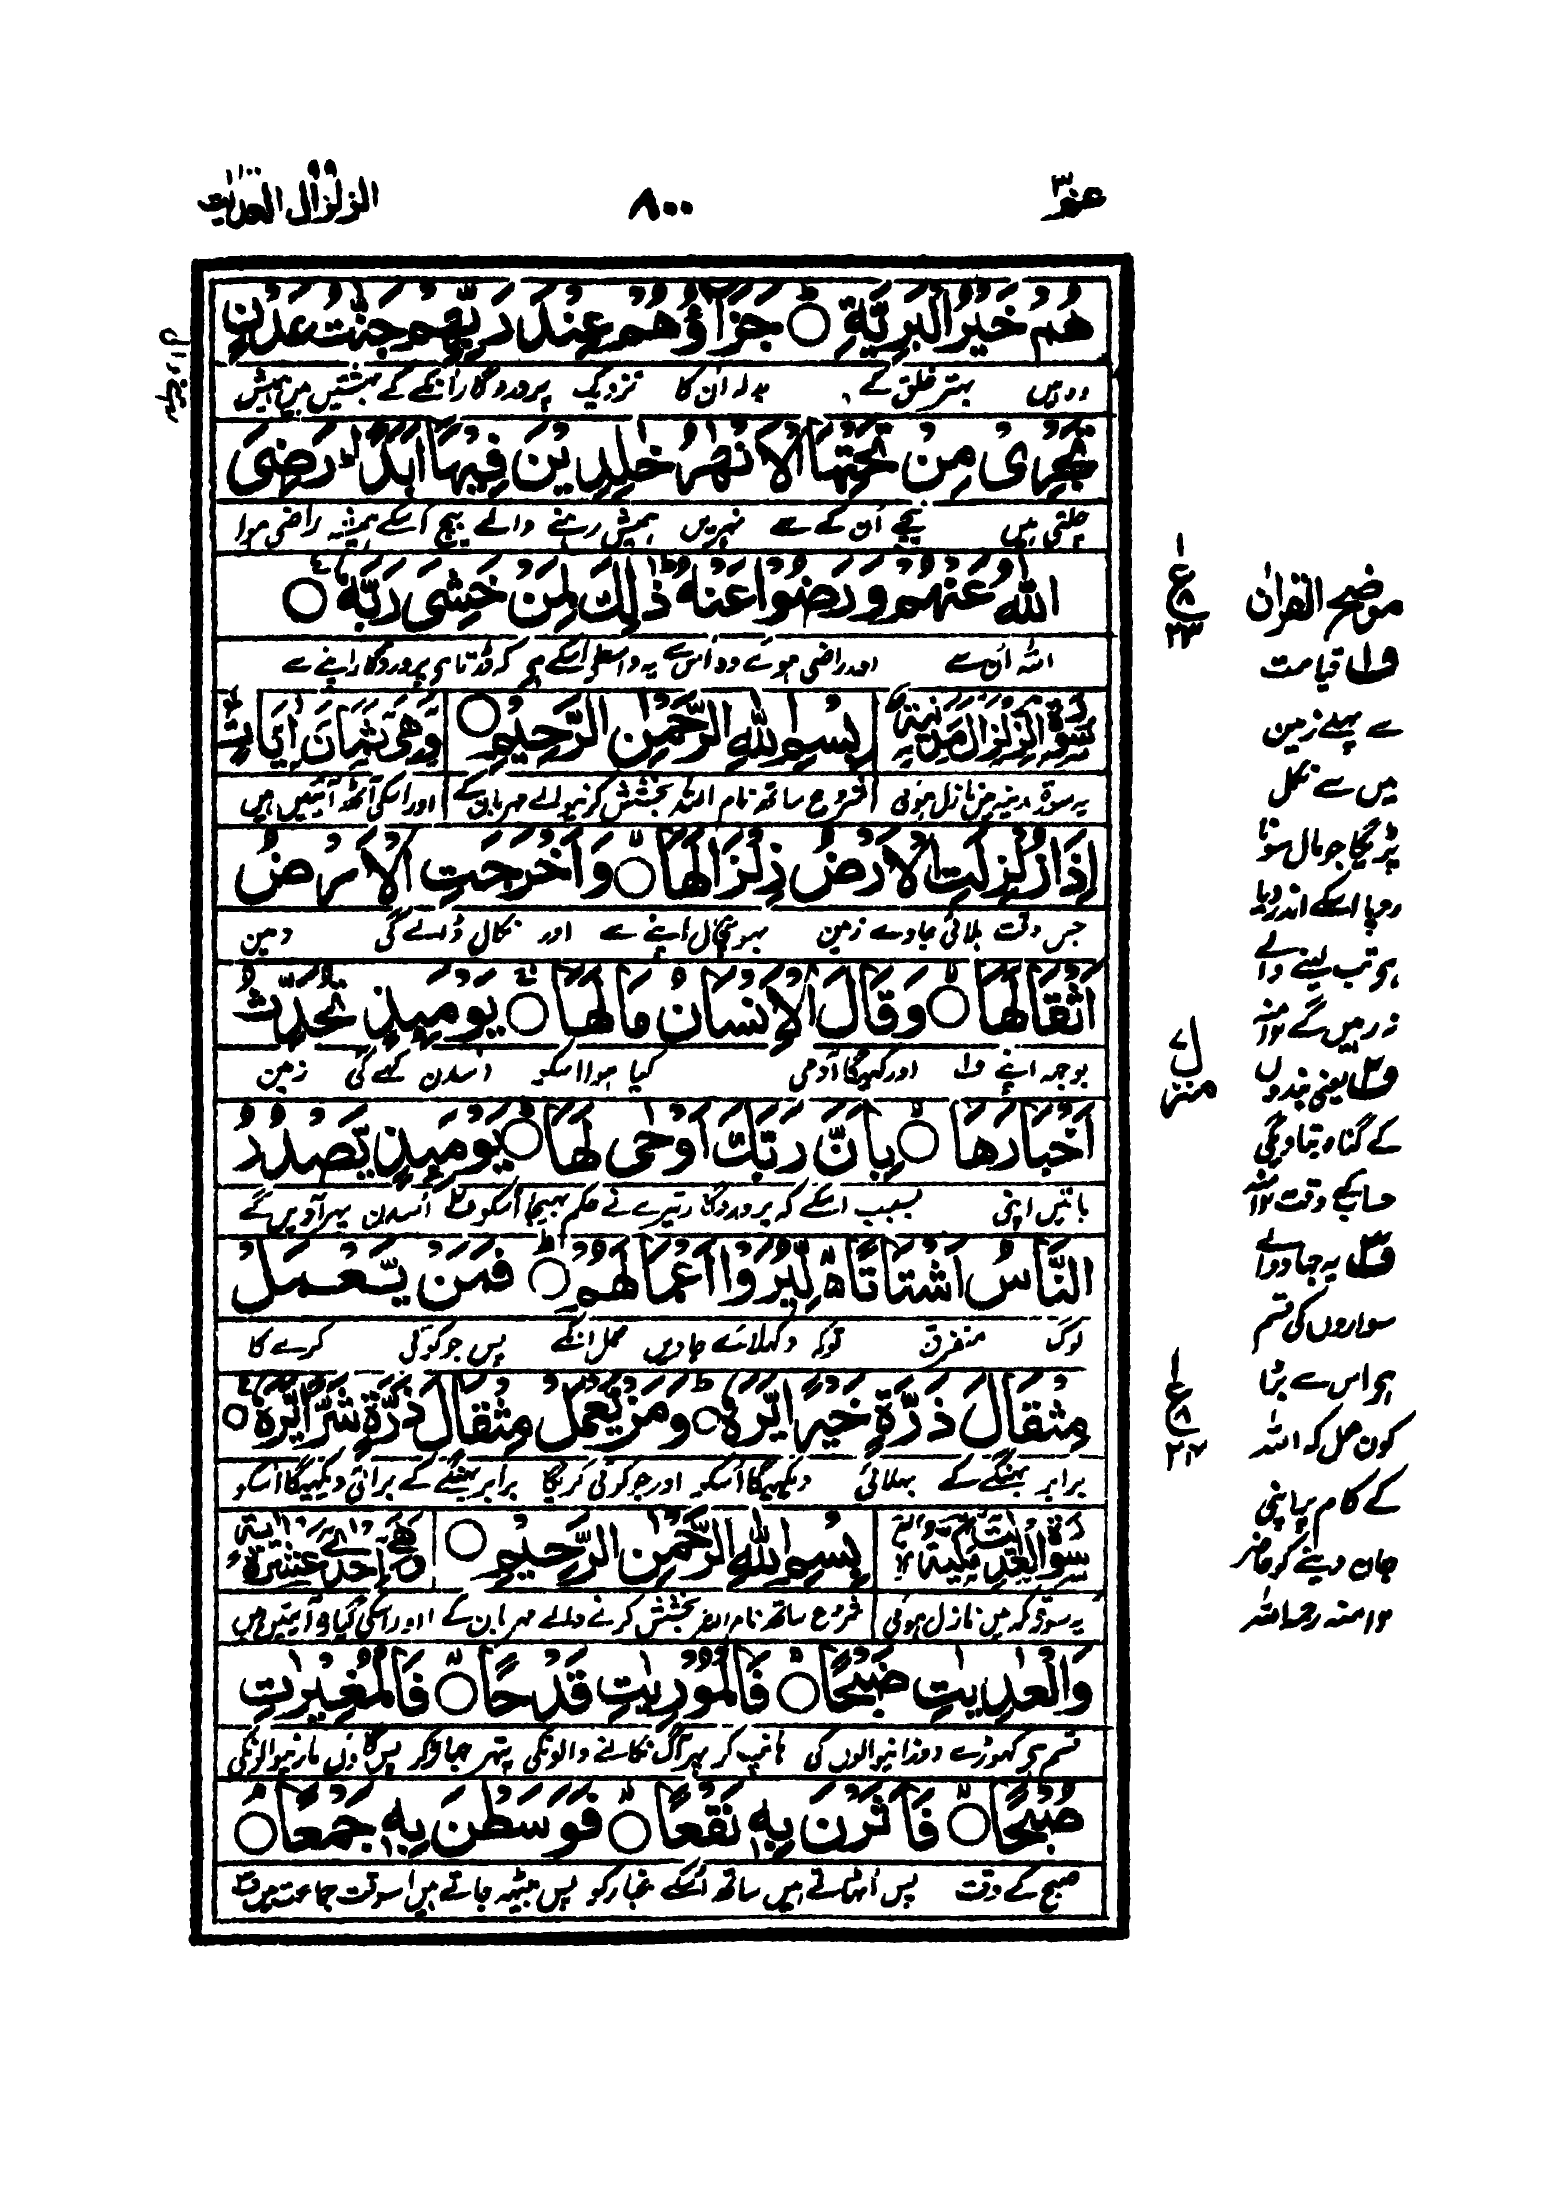 عم ٣٠
٨٠٠
الزلزال ٩٩ العديت ١٠٠
هُمْ خَيْرُ الْبَرِيَّةِ ○ جَزَآؤُهُمْ عِنْدَ رَبِّهِمْ جَنّٰتُ عَدْنٍ
وہ ہیں بہتر خلق کے بدلہ اُن کا نزدیک پروردگار اُنکے کے بہشتیں ہیں ہمیش
تَجْرِىْ مِنْ تَحْتِهَا الْاَنْهٰرُ خٰلِدِيْنَ فِيْهَا اَبَدًا ؕ رَضِىَ
چلتی ہیں نیچے اُن کے سے نہریں ہمیش رہنے والے بیچ اُسکے ہمیشہ راضی ہوا
اللّٰهُ عَنْهُمْ وَ رَضُوْا عَنْهُ ؕ ذٰلِكَ لِمَنْ خَشِىَ رَبَّهٗ ○
اللہ اُن سے اور راضی ہوئے وہ اُس سے یہ واسطے اُسکے ہی کہ ڈرتا ہی پروردگار اپنے سے
سُوْرَةُ الزِّلْزَالِ مَدَنِيَّةٌ بِسْمِ اللّٰهِ الرَّحْمٰنِ الرَّحِيْمِ ○ وَهِىَ ثَمَانُ اٰيَاتٍ
یہ سورۃ مدینہ میں نازل ہوئی شروع ساتھ نام اللہ بخشش کرنیوالے مہربان کے اور اسکی آٹھ آیتیں ہیں
اِذَا زُلْزِلَتِ الْاَرْضُ زِلْزَالَهَا ○ وَاَخْرَجَتِ الْاَرْضُ
جس وقت ہلائی جاوے زمین بہونچال اپنے سے اور نکال ڈالے گی زمین
اَثْقَالَهَا ○ وَقَالَ الْاِنْسَانُ مَا لَهَا ○ يَوْمَئِذٍ تُحَدِّثُ
بوجھ اپنے ف١ اور کہیگا آدمی کیا ہوا اسکو اُسدن کہے گی زمین
اَخْبَارَهَا ○ بِاَنَّ رَبَّكَ اَوْحٰى لَهَا ○ يَوْمَئِذٍ يَّصْدُرُ
باتیں اپنی بسبب اسکے کہ پروردگار تیرے نے حکم بھیجا اُسکو ف٢ اُسدن پھر آویں گے
النَّاسُ اَشْتَاتًا ۙ لِّيُرَوْا اَعْمَالَهُمْ ○ فَمَنْ يَّعْمَلْ
لوگ متفرق توکہ دکھلائے جاویں عمل انکے پس جو کوئی کرے گا
مِثْقَالَ ذَرَّةٍ خَيْرًا يَّرَهٗ ○ وَمَنْ يَّعْمَلْ مِثْقَالَ ذَرَّةٍ شَرًّا يَّرَهٗ ○
برابر بھنگے کے بھلائی دیکھیگا اُسکو اور جو کوئی کریگا برابر بھنگے کے برائی دیکھیگا اُسکو
سُوْرَةُ الْعٰدِيٰتِ مَكِّيَّةٌ بِسْمِ اللّٰهِ الرَّحْمٰنِ الرَّحِيْمِ ○ وَهِىَ اِحْدٰى عَشَرَةَ اٰيَةً
یہ سورۃ مکہ میں نازل ہوئی شروع ساتھ نام اللہ بخشش کرنے والے مہربان کے اور اسکی گیارہ آیتیں ہیں
وَالْعٰدِيٰتِ ضَبْحًا ○ فَالْمُوْرِيٰتِ قَدْحًا ○ فَالْمُغِيْرٰتِ
قسم ہی گھوڑے دوڑانیوالوں کی ہانپ کر پھر آگ نکالنے والونکی پتھر جھاڑکر پس گاؤں مارنیوالونکی
صُبْحًا ○ فَاَثَرْنَ بِهٖ نَقْعًا ○ فَوَسَطْنَ بِهٖ جَمْعًا ○
صبح کے وقت پس اُٹھاتے ہیں ساتھ اُسکے غبار کو پس بیٹھ جاتے ہیں اُسوقت جماعت میں ف٣
ع ٨ ٢٣
موضح القرآن
ف١ قیامت
سے پہلے زمین
میں سے نکل
پڑیگا جو مال سونا
روپا اسکے اندر دبا
ہی تب لینے والے
نہ رہیں گے ١٢ منہ
ف٢ یعنی بندوں
کے گناہ بتاویگی
حساب کے وقت ١٢ منہ
ف٣ یہ جہاد والے
سواروں کی قسم
ہی اس سے بڑا
کون عمل کہ اللہ
کے کام پر اپنی
جان دینے کو حاضر
١٢ منہ رحمہ اللہ
منزل ٧
ع ٨ ٢٤